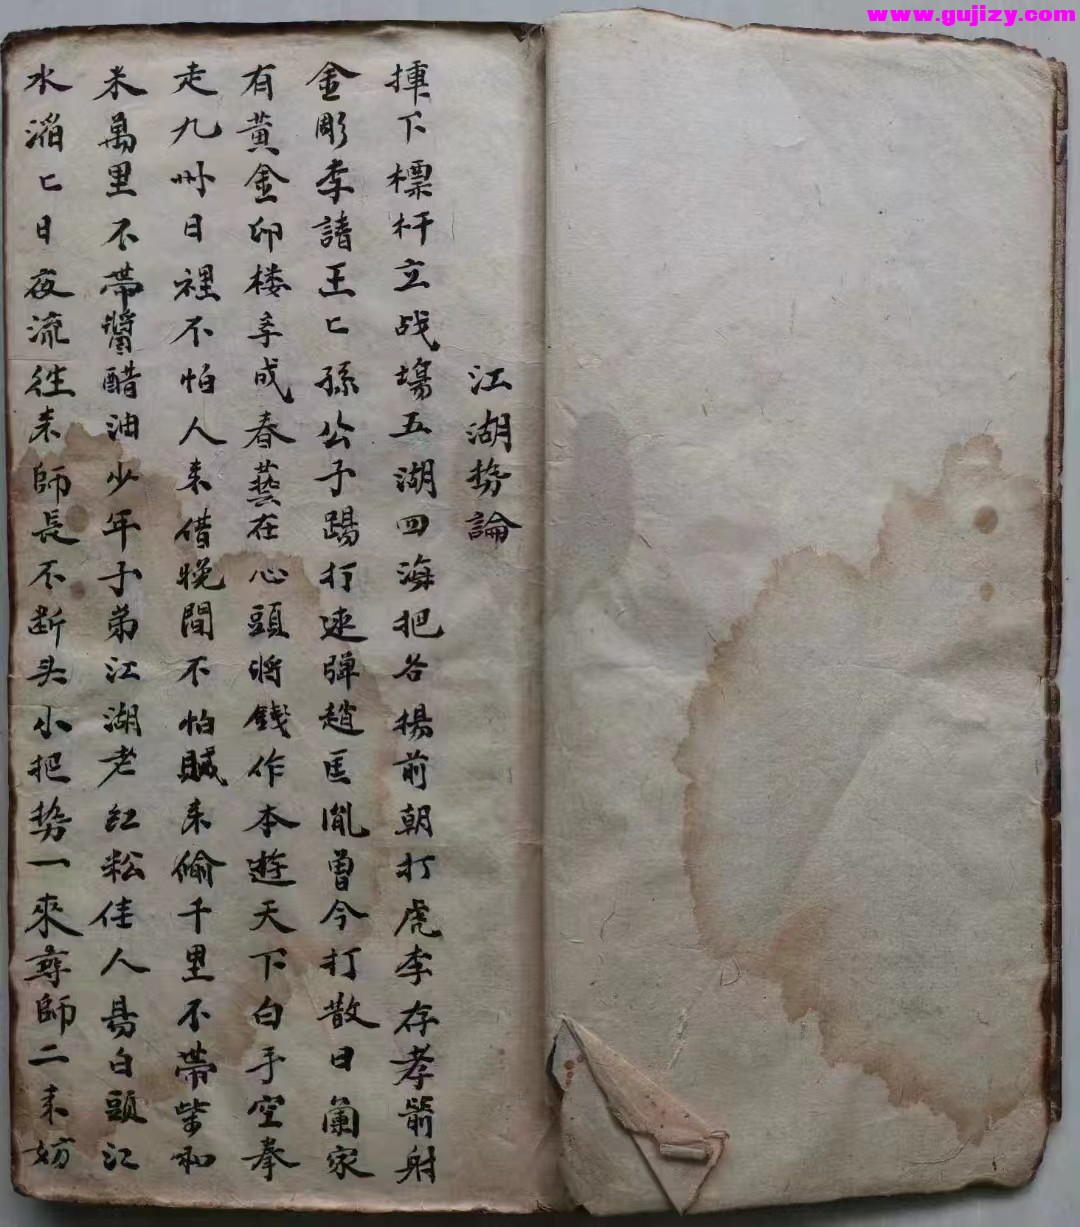 www.gujizy.com
江湖势論
揮下標杆立战場五湖四海把名揚前朝打虎李存孝箭射
金彫李請王匕孫公子踢打速弹趙匡胤曾今打散日蘭家
有黄金卬楼李成春藝在心頭将錢作本遊天下白手空拳
走九州日裡不怕人来借晚間不怕賊来偷千里不帶柴和
米萬里不帶醬醋油少年子弟江湖老红粉佳人易白頭江
水滔匕日夜流往来師長不断头小把势一來尊師二来妨